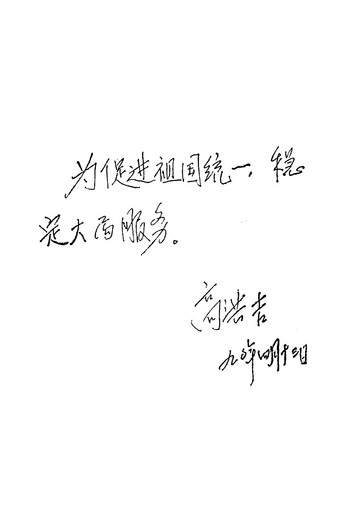 为促进祖国统一,稳
定大局服务。
高洪吉
九〇年四月十二日